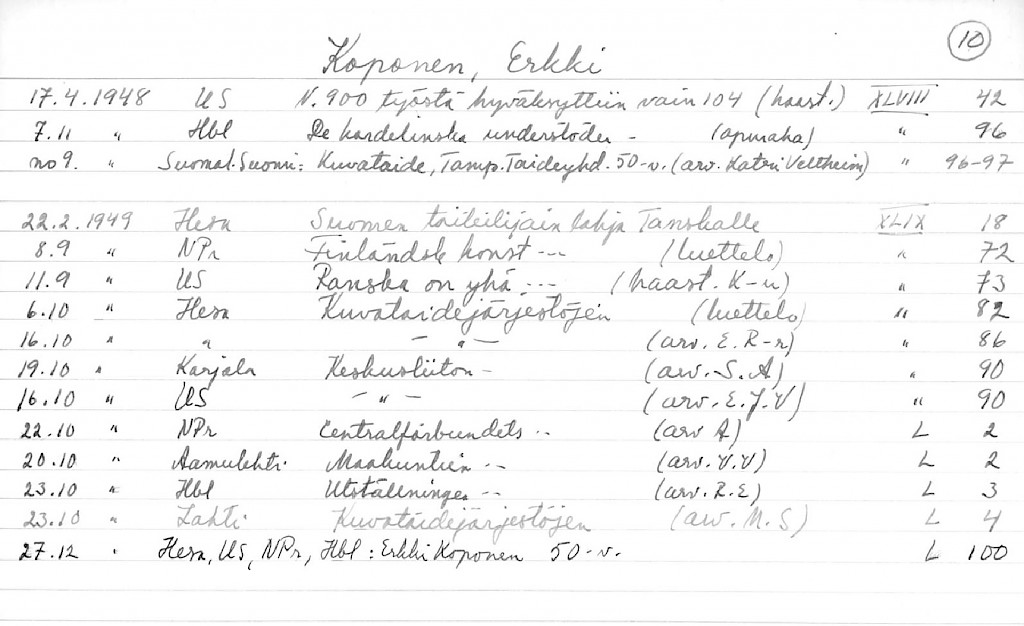 10
Koponen, Erkki
17.4.1948 US N. 900 työstä hyväksyttiin vain 104 (haast.) XLVIII 42
7.11 " Hbl De kordelinska understöden - (apuraha) " 96
no 9. " Suomal. Suomi: Kuvataide, Tamp. Taideyhd. 50-v. (arv. Katri Veltheim) " 96-97
22.2.1949 Hesa Suomen taiteilijain lahja Tanskalle XLIX 18
8.9 " NPr Finländsk konst --- (luettelo) " 72
11.9 " US Ranska on yhä --- (haast. K-n) " 73
6.10 " Hesa Kuvataidejärjestöjen (luettelo) " 82
16.10 " " - " - (arv. E. R-r) " 86
19.10 " Karjala Keskusliiton - (arv. S. A) " 90
16.10 " US - " - (arv. E.J.V) " 90
22.10 " NPr Centralförbundets -- (arv A) L 2
20.10 " Aamulehti Maakuntien -- (arv. V.V) L 2
23.10 " Hbl Utställningen -- (arv. R.E) L 3
23.10 " Lahti Kuvataidejärjestöjen (arv. M.S) L 4
27.12 " Hesa, US, NPr, Hbl: Erkki Koponen 50-v. L 100